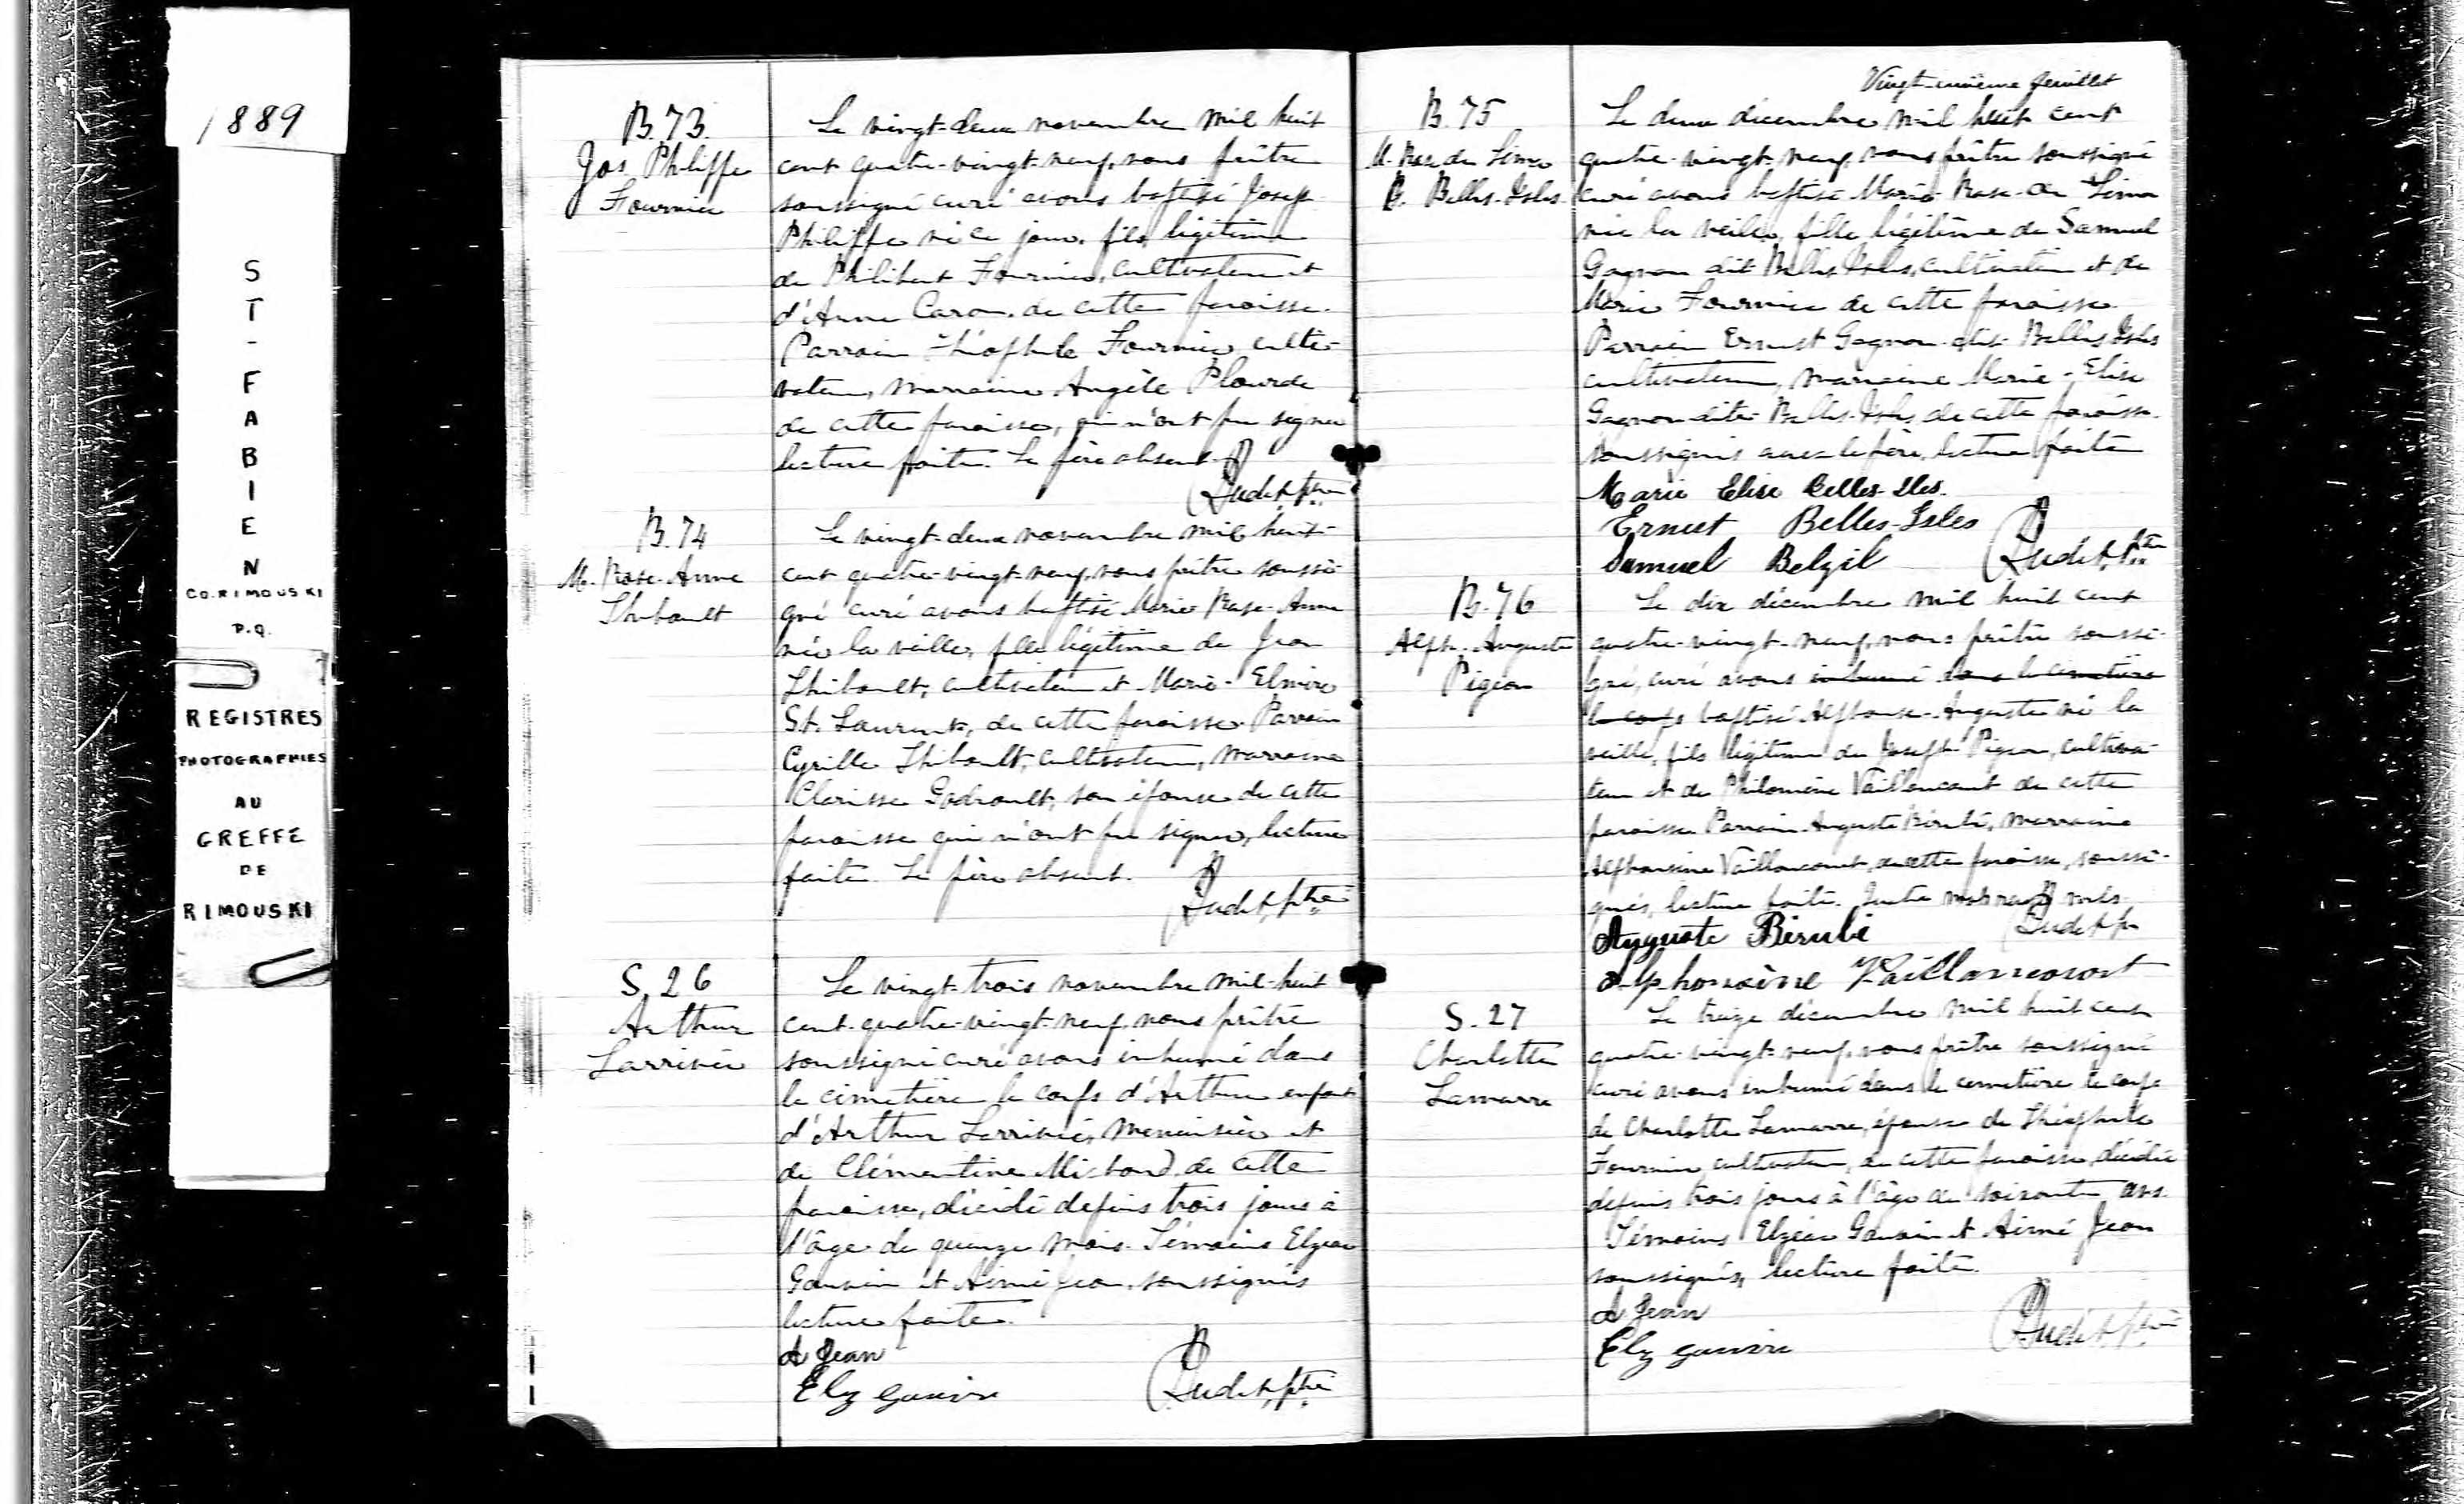 1889
S
T
-
F
A
B
I
E
N
CO. RIMOUSKI
P.Q.
REGISTRES
PHOTOGRAPHIES
AU
GREFFE
DE
RIMOUSKI
B.73
Jos. Philippe
Fournier
Le vingt-deux novembre mil huit
cent quatre-vingt-neuf, nous prêtre
soussigné curé avons baptisé Joseph
Philippe né ce jour, fils légitime
de Philibert Fournier, cultivateur et
d'Anne Caron, de cette paroisse.
Parrain Théophile Fournier culti-
vateur, marraine Angèle Plourde
de cette paroisse, qui n'ont pu signer
lecture faite. Le père absent.
Audet, ptre
B.74
M. Rose-Anne
Thibault
Le vingt-deux novembre mil huit-
cent quatre-vingt-neuf, nous prêtre soussi-
gné curé avons baptisé Marie Rose-Anne
née la veille, fille légitime de Jean
Thibault, cultivateur et Marie-Elmire
St. Laurent, de cette paroisse. Parrain
Cyrille Thibault, cultivateur, marraine
Clarisse Godreault, son épouse de cette
paroisse qui n'ont pu signer, lecture
faite. Le père absent.
Audet, ptre
S. 26
Arthur
Larrivée
Le vingt-trois novembre mil-huit
cent-quatre-vingt-neuf, nous prêtre
soussigné curé avons inhumé dans
le cimetière le corps d'Arthur enfant
d'Arthur Larrivée, menuisier et
de Clémentine Michaud, de cette
paroisse, décédé depuis trois jours à
l'âge de quinze mois. Témoins Elzéar
Gauvin et Aimé Jean, soussignés
lecture faite.
A Jean
Elz Gauvin
Audet, ptre
Vingt-unième feuillet
B.75
M. Rose de Lima
G. Belles-Isles
Le deux décembre mil huit cent
quatre-vingt-neuf, nous prêtre soussigné
curé avons baptisé Marie-Rose-de Lima
née la veille, fille légitime de Samuel
Gagnon dit Belles-Isles, cultivateur et de
Marie Fournier de cette paroisse.
Parrain Ernest Gagnon dit Belles Isles
cultivateur, marraine Marie-Elise
Gagnon dite Belles-Isles, de cette paroisse.
soussignés avec le père, lecture faite
Marie Elise Belles-Iles.
Ernest Belles-Isles
Samuel Belzil
Audet, Ptre
B.76
Alph. Auguste
Pigeon
Le dix décembre mil huit cent
quatre-vingt-neuf, nous prêtre soussi-
gné, curé avons inhumé dans le cimetière
le corps baptisé Alphonse-Auguste né la
veille, fils légitime de Joseph Pigeon, cultiva-
teur et de Philomène Vaillancourt de cette
paroisse. Parrain Auguste Bérubé, marraine
Alphonsine Vaillancourt, de cette paroisse, soussi-
gnés, lecture faite. nuls.
Auguste Bérubé
Audet, ptr
Alphonsène Vaillancourt
S. 27
Charlotte
Lamarre
Le treize décembre mil huit cent
quatre-vingt-neuf, nous prêtre soussigné
curé avons inhumé dans le cimetière le corps
de Charlotte Lamarre, épouse de Théophile
Fournier, cultivateur, de cette paroisse, décédée
depuis trois jours à l'âge de soixante ans.
Témoins Elzéar Gauvin et Aimé Jean
soussignés, lecture faite.
A Jean
Elz Gauvin
Audet, ptre